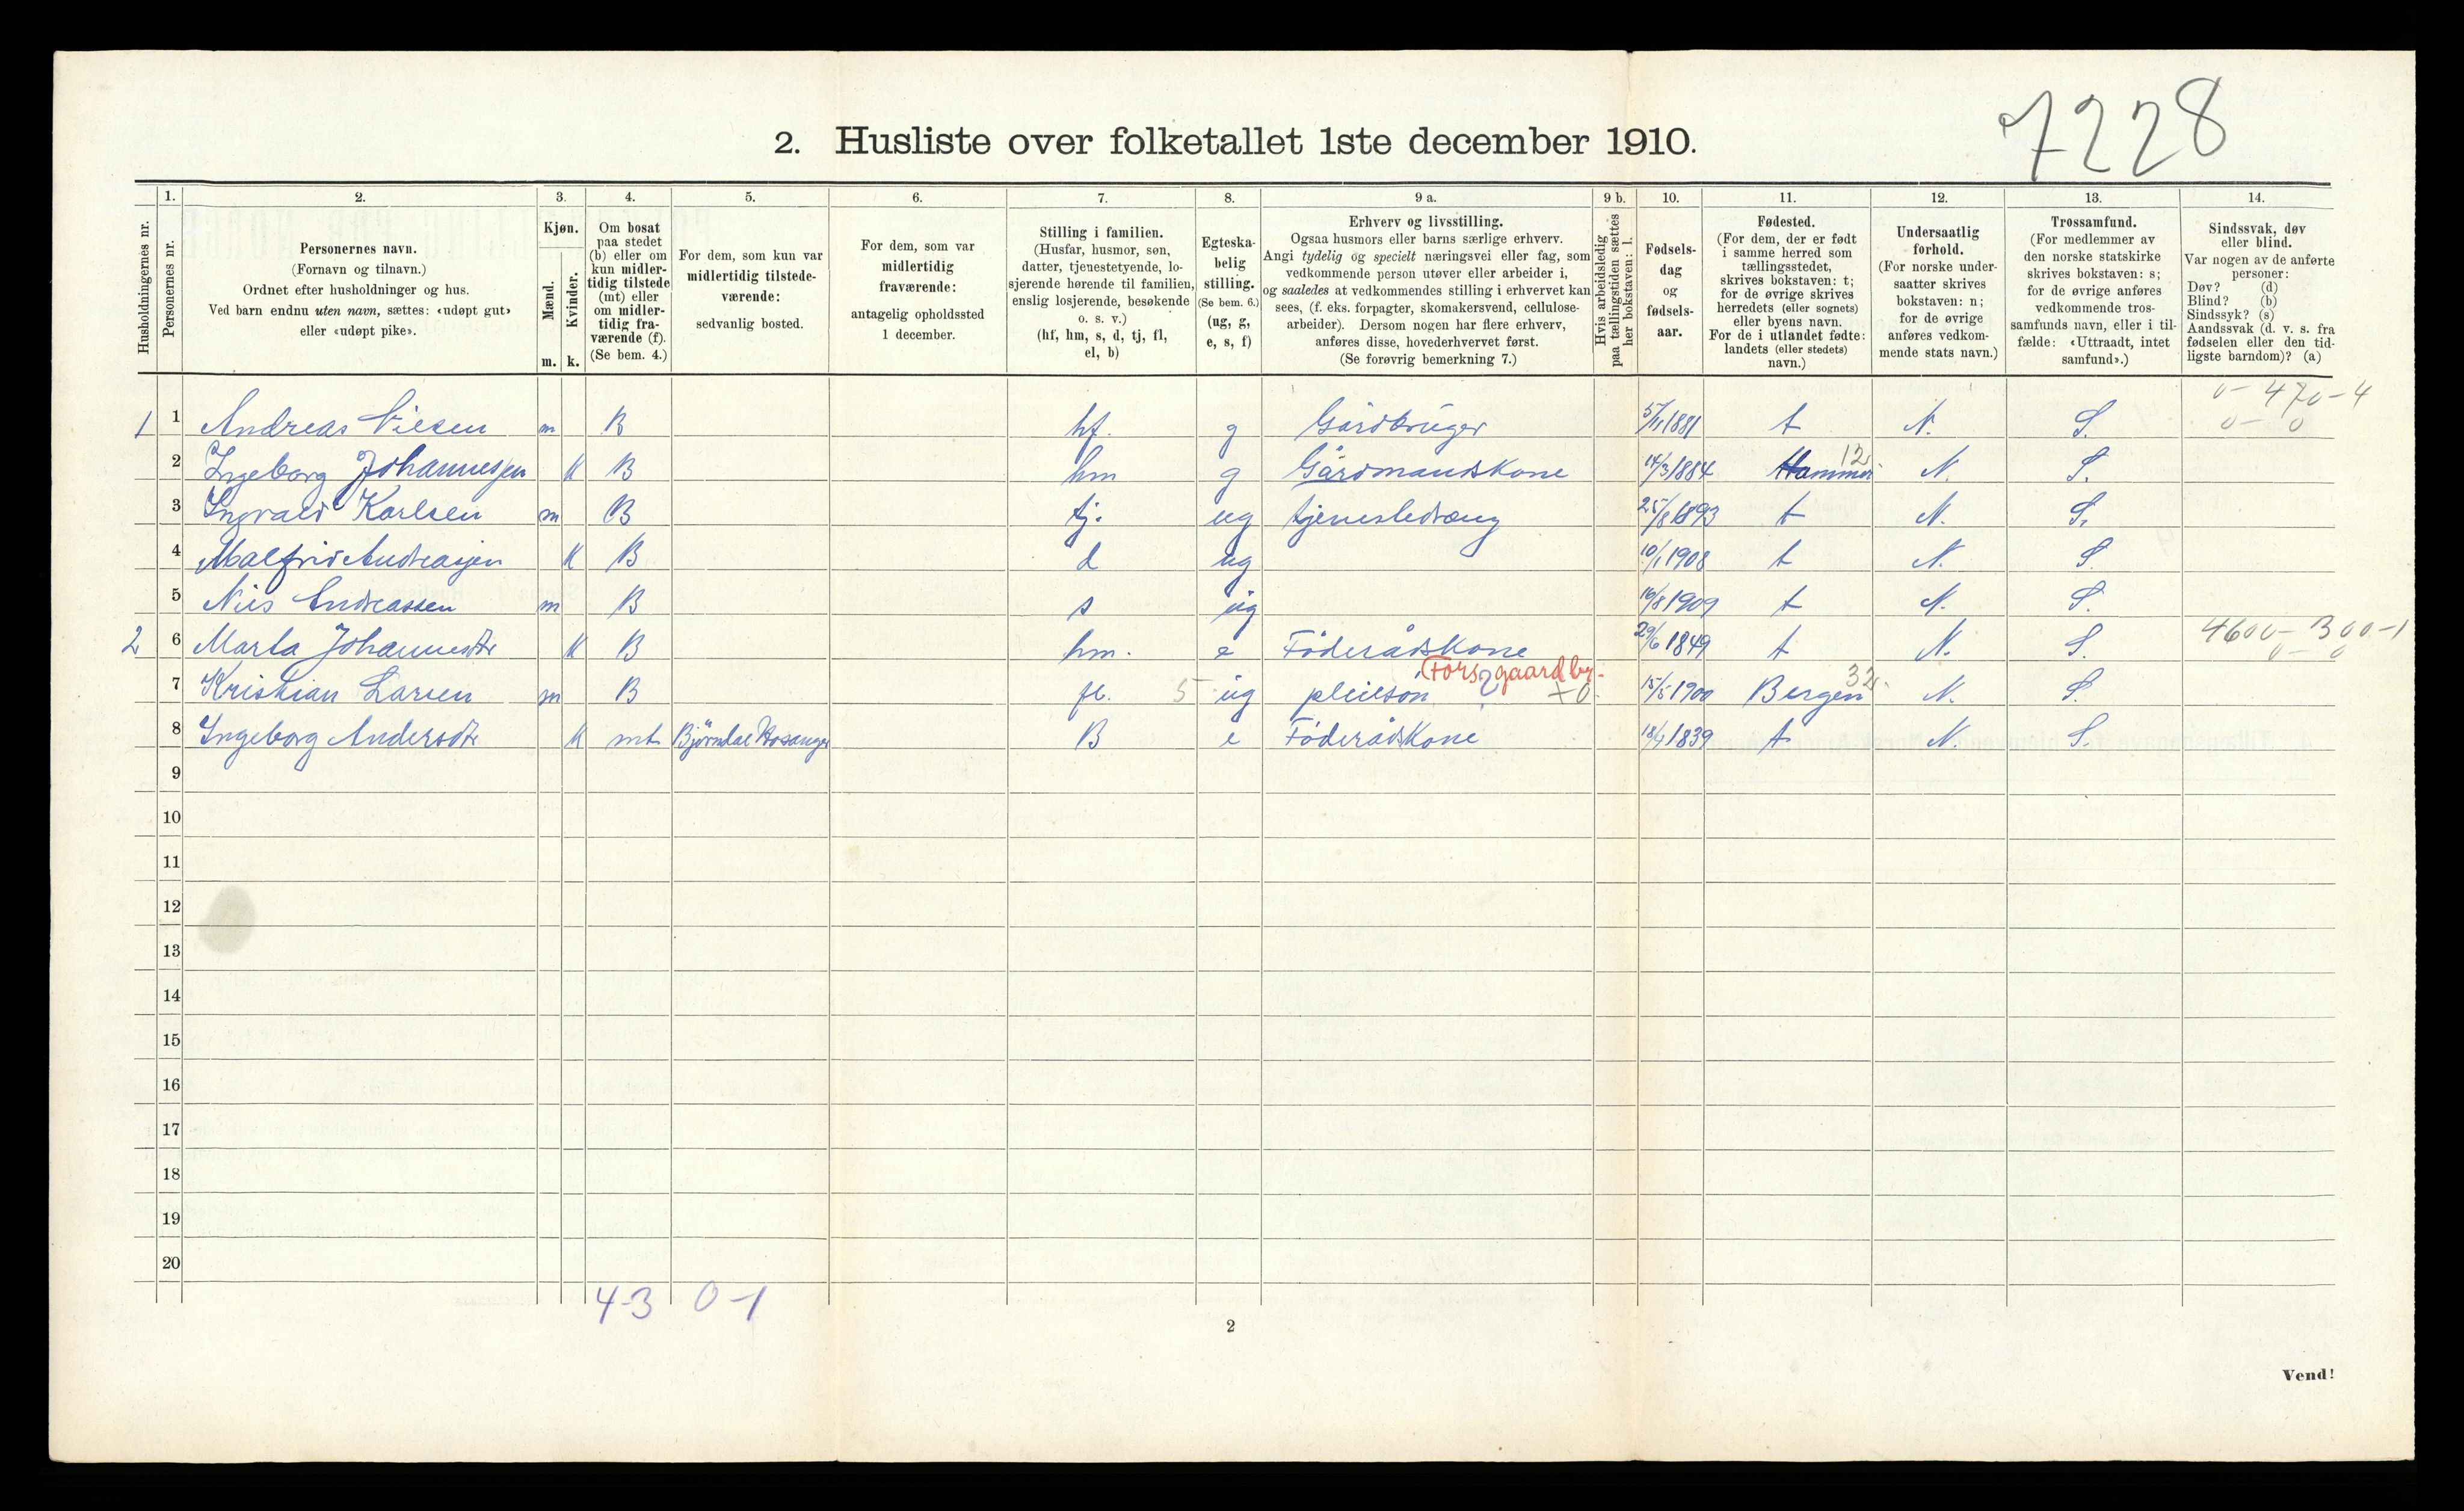 7228
2. Husliste over folketallet 1ste december 1910.
Husholdningernes nr.
1.
Personernes nr.
2.
Personernes navn.
(Fornavn og tilnavn.)
Ordnet efter husholdninger og hus.
Ved barn endnu uten navn, sættes: «udøpt gut»
eller «udøpt pike».
3.
Kjøn.
Mænd.
Kvinder.
m. k.
4.
Om bosat
paa stedet
(b) eller om
kun midler-
tidig tilstede
(mt) eller
om midler-
tidig fra-
værende (f).
(Se bem. 4.)
5.
For dem, som kun var
midlertidig tilstede-
værende:
sedvanlig bosted.
6.
For dem, som var
midlertidig
fraværende:
antagelig opholdssted
1 december.
7.
Stilling i familien.
(Husfar, husmor, søn,
datter, tjenestetyende, lo-
sjerende hørende til familien,
enslig losjerende, besøkende
o. s. v.)
(hf, hm, s, d, tj, fl,
el, b)
8.
Egteska-
belig
stilling.
(Se bem. 6.)
(ug, g,
e, s, f)
9 a.
Erhverv og livsstilling.
Ogsaa husmors eller barns særlige erhverv.
Angi tydelig og specielt næringsvei eller fag, som
vedkommende person utøver eller arbeider i,
og saaledes at vedkommendes stilling i erhvervet kan
sees, (f. eks. forpagter, skomakersvend, cellulose-
arbeider). Dersom nogen har flere erhverv,
anføres disse, hovederhvervet først.
(Se forøvrig bemerkning 7.)
9 b.
Hvis arbeidsledig
paa tællingstiden sættes
her bokstaven: l.
10.
Fødsels-
dag
og
fødsels-
aar.
11.
Fødested.
(For dem, der er født
i samme herred som
tællingsstedet,
skrives bokstaven: t;
for de øvrige skrives
herredets (eller sognets)
eller byens navn.
For de i utlandet fødte:
landets (eller stedets)
navn.)
12.
Undersaatlig
forhold.
(For norske under-
saatter skrives
bokstaven: n;
for de øvrige
anføres vedkom-
mende stats navn.)
13.
Trossamfund.
(For medlemmer av
den norske statskirke
skrives bokstaven: s;
for de øvrige anføres
vedkommende tros-
samfunds navn, eller i til-
fælde: «Uttraadt, intet
samfund».)
14.
Sindssvak, døv
eller blind.
Var nogen av de anførte
personer:
Døv? (d)
Blind? (b)
Sindssyk? (s)
Aandssvak (d. v. s. fra
fødselen eller den tid-
ligste barndom)? (a)
1 1 Andreas Nilsen m B hf. g Gårdbruger 5/11 1881 t N. S. 0-470-4
0-0
2 Ingeborg Johannessen K B hm g Gårdmandskone 14/3 1884 Hammer 12 N. S.
3 Ingvald Karlsen m B tj. ug tjenestedreng 25/8 1893 t N. S.
4 Malfrid Andreasen K B d ug 10/1 1908 t N. S.
5 Nils Andreassen m B s ug 16/8 1909 t N. S.
2 6 Marta Johannesdtr K B hm. e Föderådskone 29/6 1849 t N. S. 4600-300-1
0-0
7 Kristian Larsen m B fl. 5 ug pleiesön Fors. gaardbr. +0. 15/5 1900 Bergen 32. N. S.
8 Ingeborg Andersdtr K mt Björndal Hosanger B e Föderådskone 18/4 1839 t N. S.
9
10
11
12
13
14
15
16
17
18
19
20
4-3 0-1
2
Vend!